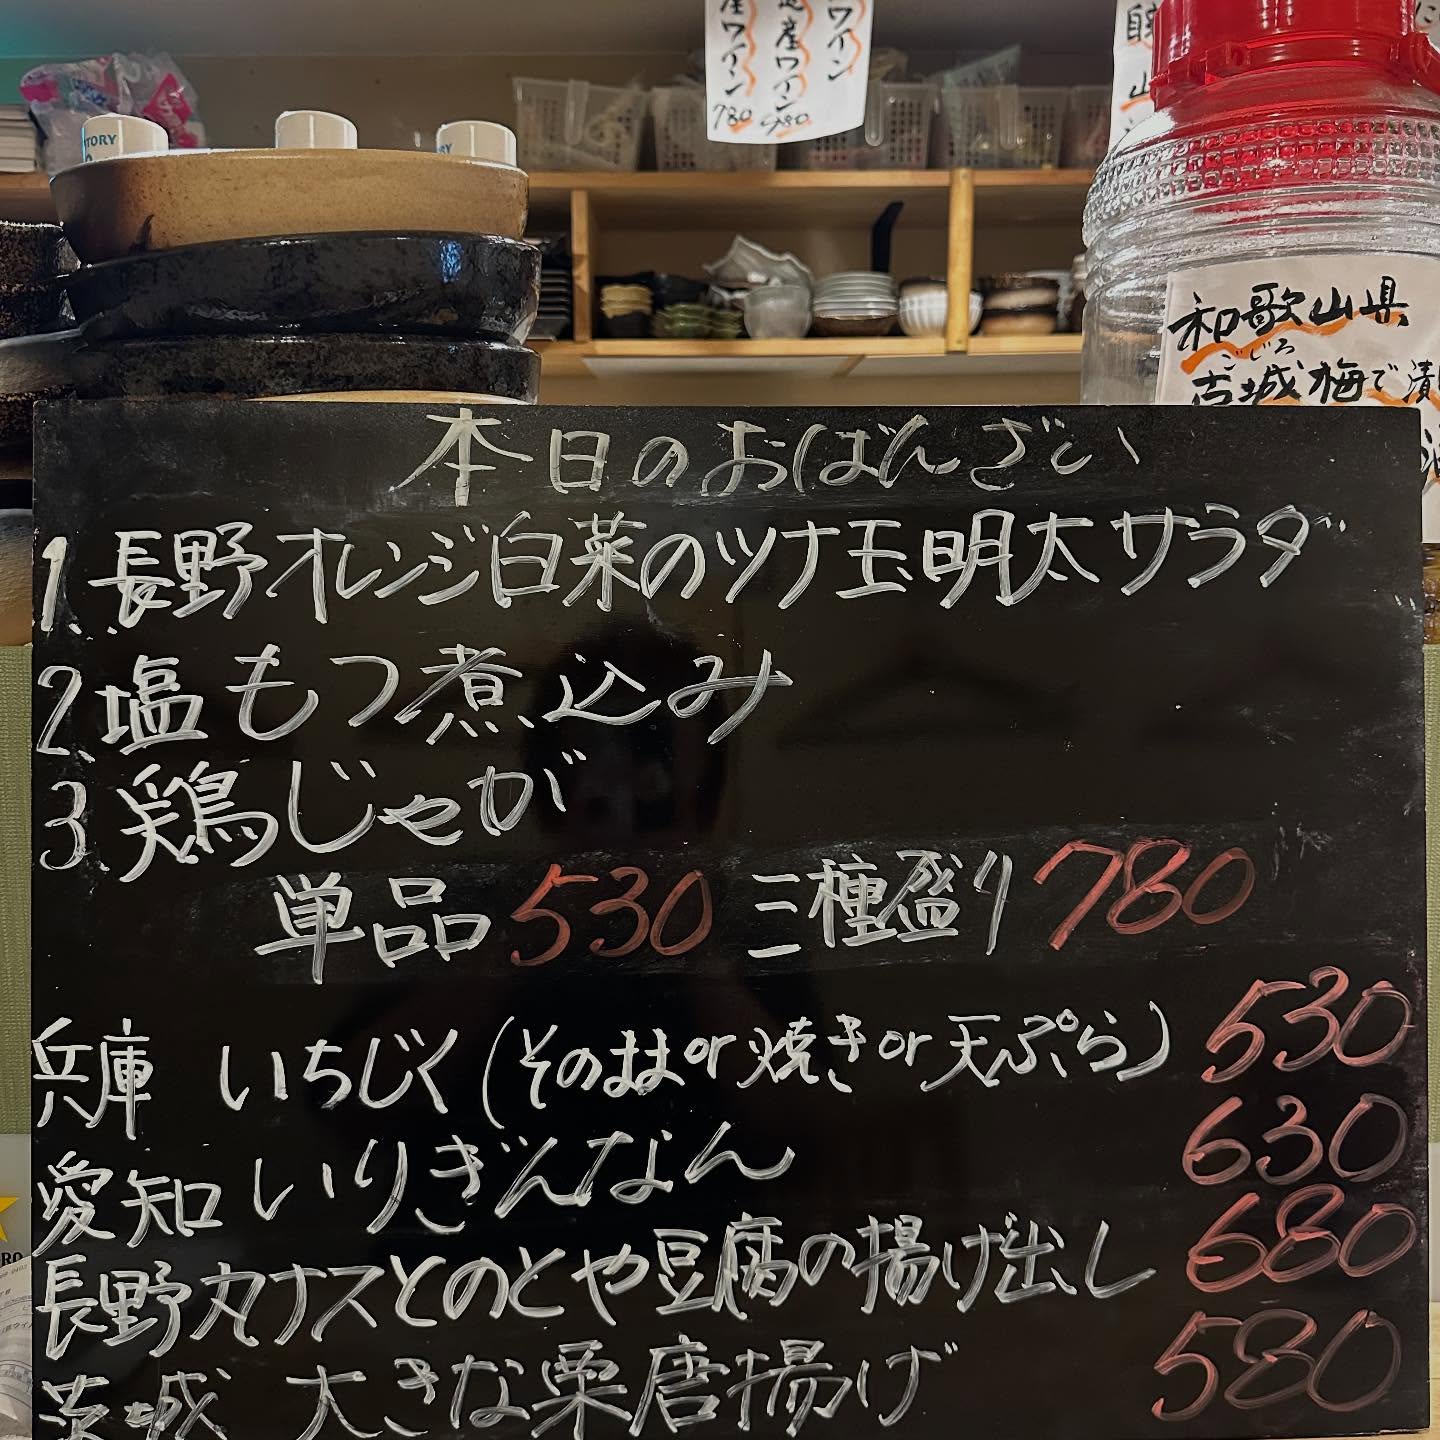 ワイン
産ワイン
産ワイン
780
980
TORY
和歌山県
こじろ
古城梅で漬
本日のおばんざい
1. 長野オレンジ白菜のツナ玉明太サラダ
2. 塩もつ煮込み
3. 鶏じゃが
単品 530 三種盛り 780
兵庫 いちじく(そのままor焼きor天ぷら) 530
愛知 いりぎんなん 630
長野丸ナスとのとや豆腐の揚げ出し 680
茨城 大きな栗唐揚げ 580